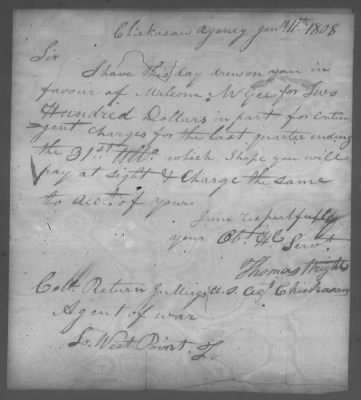 Chickasaw Agency Jany 11th 1808
Sir
I have this day drawn on you in
favour of Malcom McGee for Two
Hundred Dollars in part for Contin
gent Charges for the last quarter ending
the 31st Ulto. which I hope you will
pay at sight & Charge the same
to acct. of yours
I am respectfully
your Obt. H Servt.
Thomas Wright
Colo. Return J. Meigs U.S. Agt Chickasaws
Agent of war
So. West Point. T.